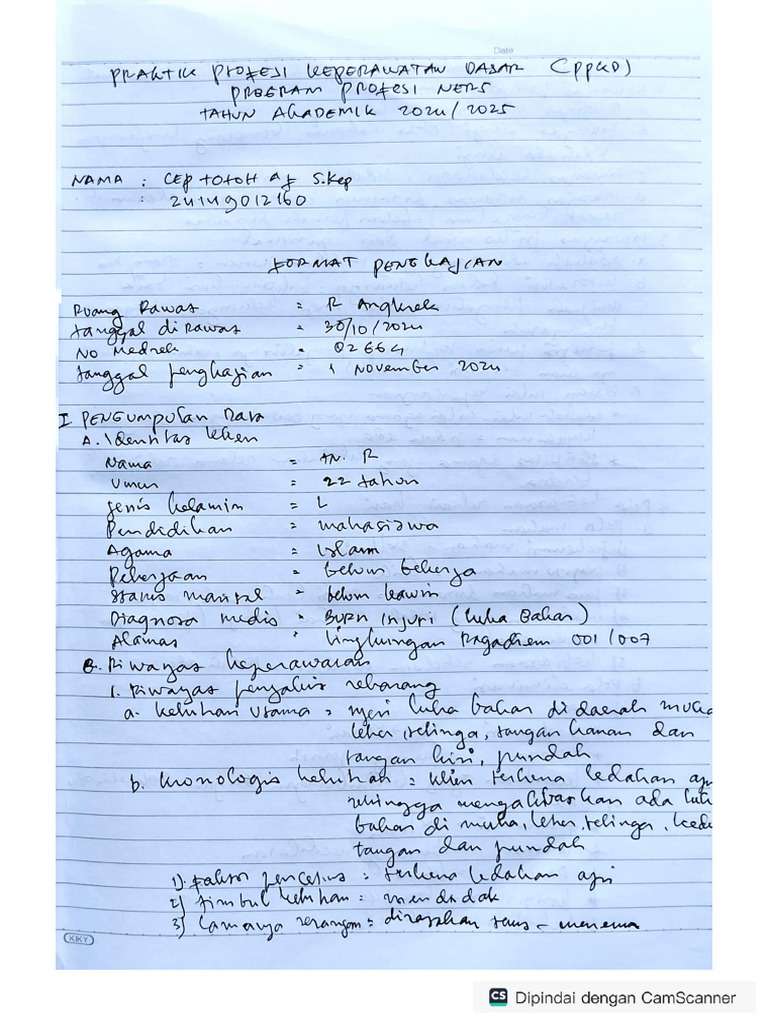 Date
PRAKTIK PROFESI KEPERAWATAN DASAR (PPKD)
PROGRAM PROFESI NERS
TAHUN AKADEMIK 2024/2025
NAMA : CEP TOTOH AF S.Kep
: 24149012160
FORMAT PENGKAJIAN
Ruang Rawat = R Anggrek
tanggal di Rawat = 30/10/2024
No Medrek = 02664
tanggal pengkajian = 1 November 2024
I PENGUMPULAN DATA
A. Identitas klien
Nama = TN. R
Umur = 22 tahun
Jenis kelamin = L
Pendidikan = mahasiswa
Agama = Islam
Pekerjaan = belum bekerja
Status marital = belum kawin
Diagnosa medis = BURN INJURI (luka Bakar)
Alamat = lingkungan Pagadiem 001/007
B. Riwayat keperawatan
1. Riwayat penyakit sekarang
a. keluhan utama = nyeri luka bakar di daerah muka
leher, telinga, tangan kanan dan
tangan kiri, pundak
b. Kronologis keluhan = klien terkena ledakan api
sehingga mengakibatkan ada luka
bakar di muka, leher, telinga, kedu
tangan dan pundak
1) faktor pencetus = terkena ledakan api
2) timbul keluhan = mendadak
3) lamanya serangan = dirasakan terus - menerus
KIKY
CS Dipindai dengan CamScanner